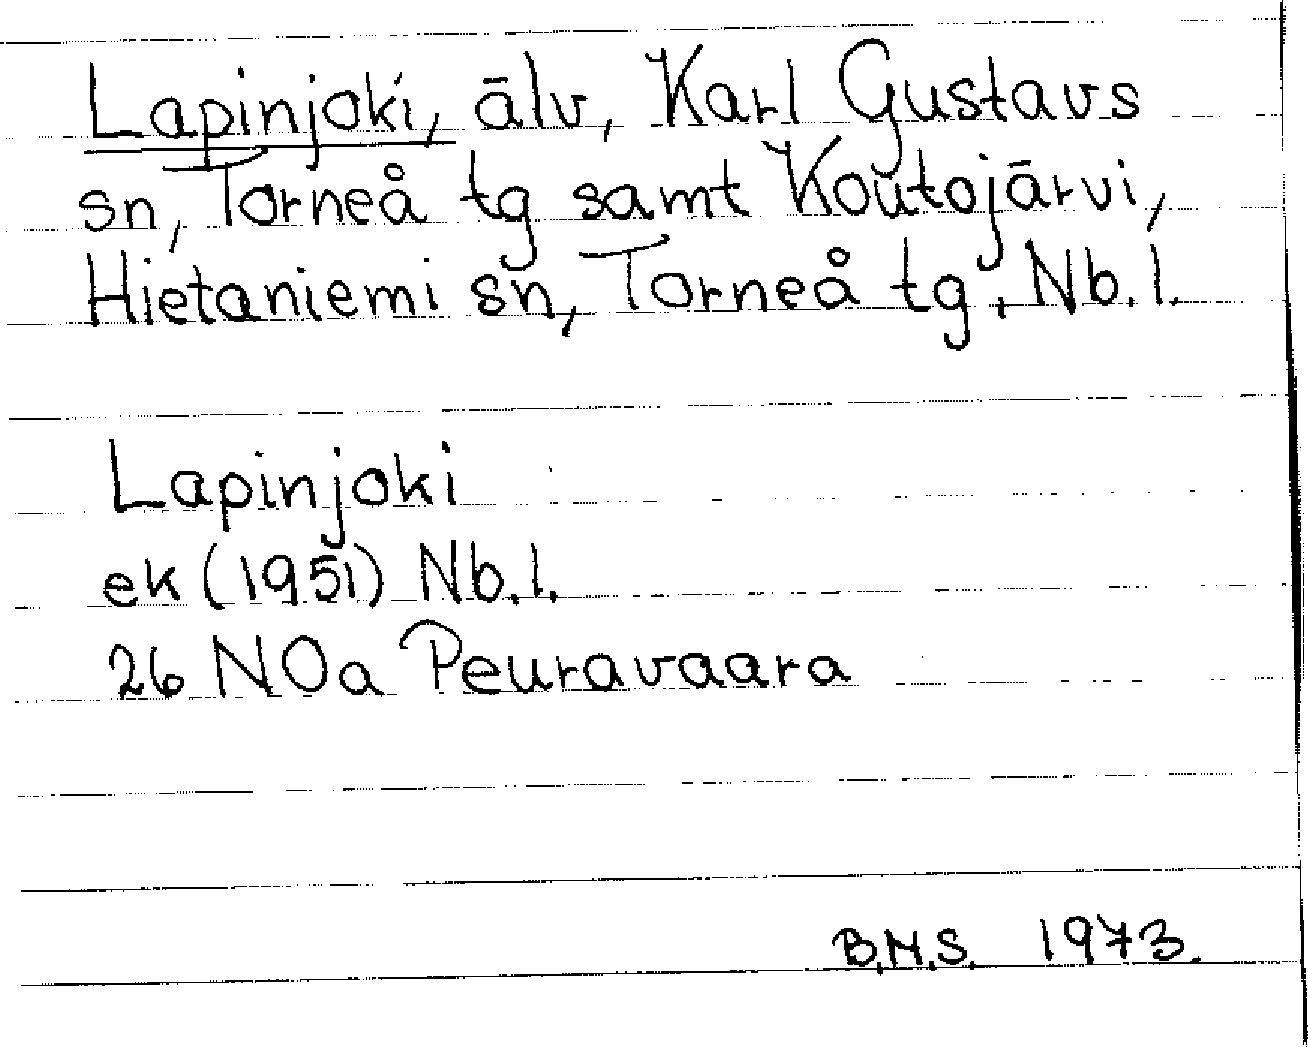 Lapinjoki, älv, Karl Gustavs
sn, Torneå tg samt Koutojärvi,
Hietaniemi sn, Torneå tg, Nb.l.
Lapinjoki
ek (1951) Nb.l.
26 NOa Peuravaara
B.M.S. 1973.